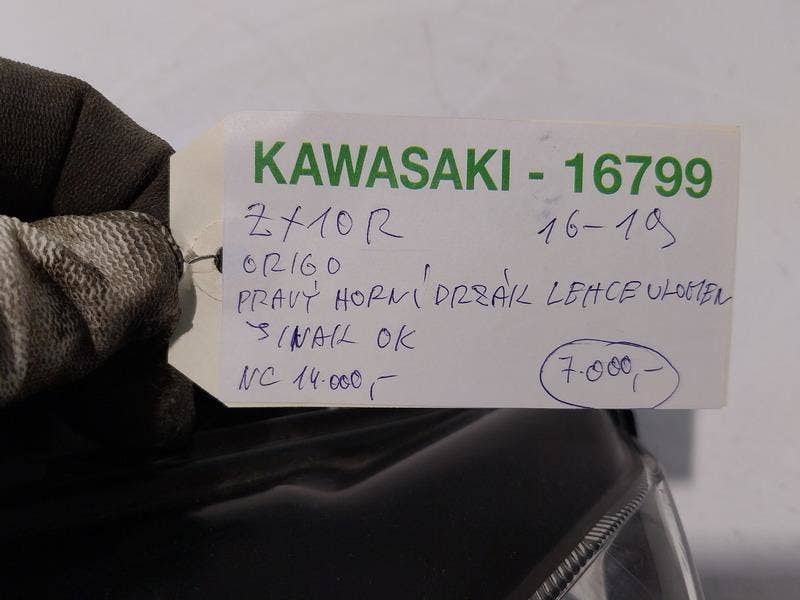 KAWASAKI - 16799
ZX10R 16-19
ORIGO
PRAVÝ HORNÍ DRŽÁK LEHCE ULOMEN
JINAK OK
NC 14.000,-
7.000,-